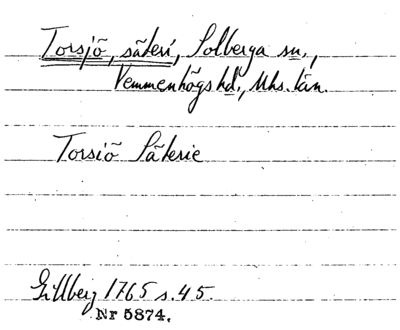 Torsjö, säteri, Solberga sn.,
Vemmenhögs hd., Mhs. län.
Torsiö Säterie
Gillberg 1765 s. 45.
Nr 5874.